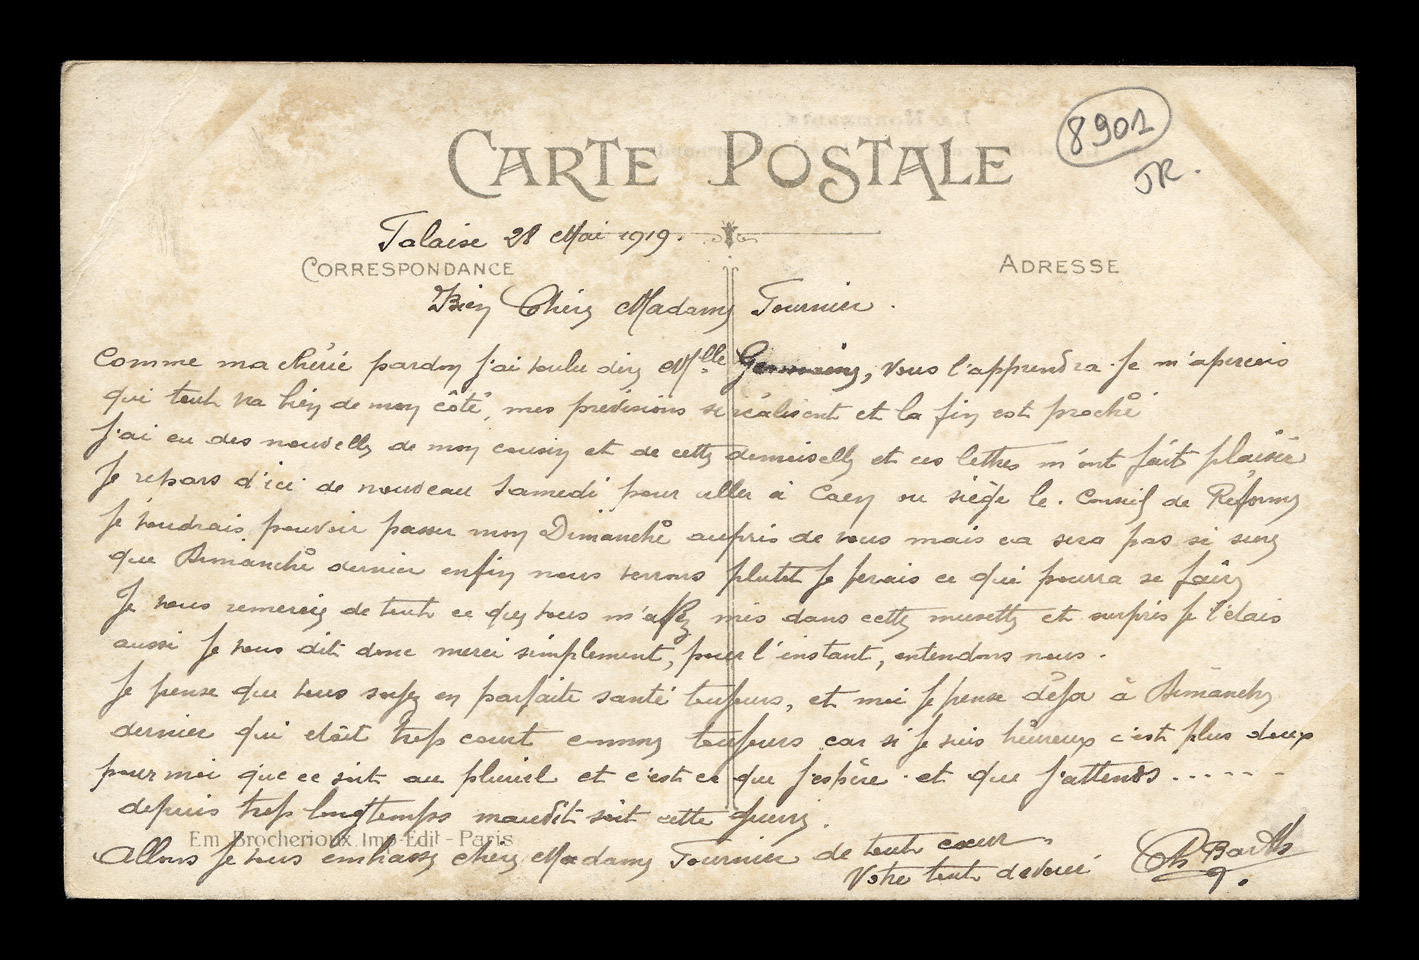 8901
JR.
CARTE POSTALE
Falaise 28 Mai 1919.
CORRESPONDANCE
ADRESSE
Bien Chère Madame Fournier.
Comme ma chérie pardon j'ai voulu dire Mlle Germaine, vous l'apprendra. Je m'aperçois
que tout va bien de mon côté, mes prévisions se réalisent et la fin est proche
J'ai eu des nouvelles de mon cousin et de cette demoiselle et ces lettres m'ont fait plaisir
Je repars d'ici de nouveau Samedi pour aller à Caen ou siège le Conseil de Réforme
Je voudrais pouvoir passer mon Dimanche auprès de vous mais ca sera pas si sure
que Dimanche dernier enfin nous verrons plutot je ferais ce qui pourra se faire
Je vous remercie de tout ce que vous m'avez mis dans cette musette et surpris je l'étais
aussi je vous dit donc merci simplement, pour l'instant, entendons nous.
Je pense que vous soyez en parfaite santé toujours, et moi je pense déja à Dimanche
dernier qui etait trop court comme toujours car si je suis heureux c'est plus doux
pour moi que ce soit au pluriel et c'est ce que j'espère et que j'attends......
depuis trop longtemps maudit soit cette guerre.
Em. Brocherioux Imp-Edit - Paris
Allons je vous embrasse chère Madame Fournier de tout cœur
Votre tout dévoué
Ch Barth